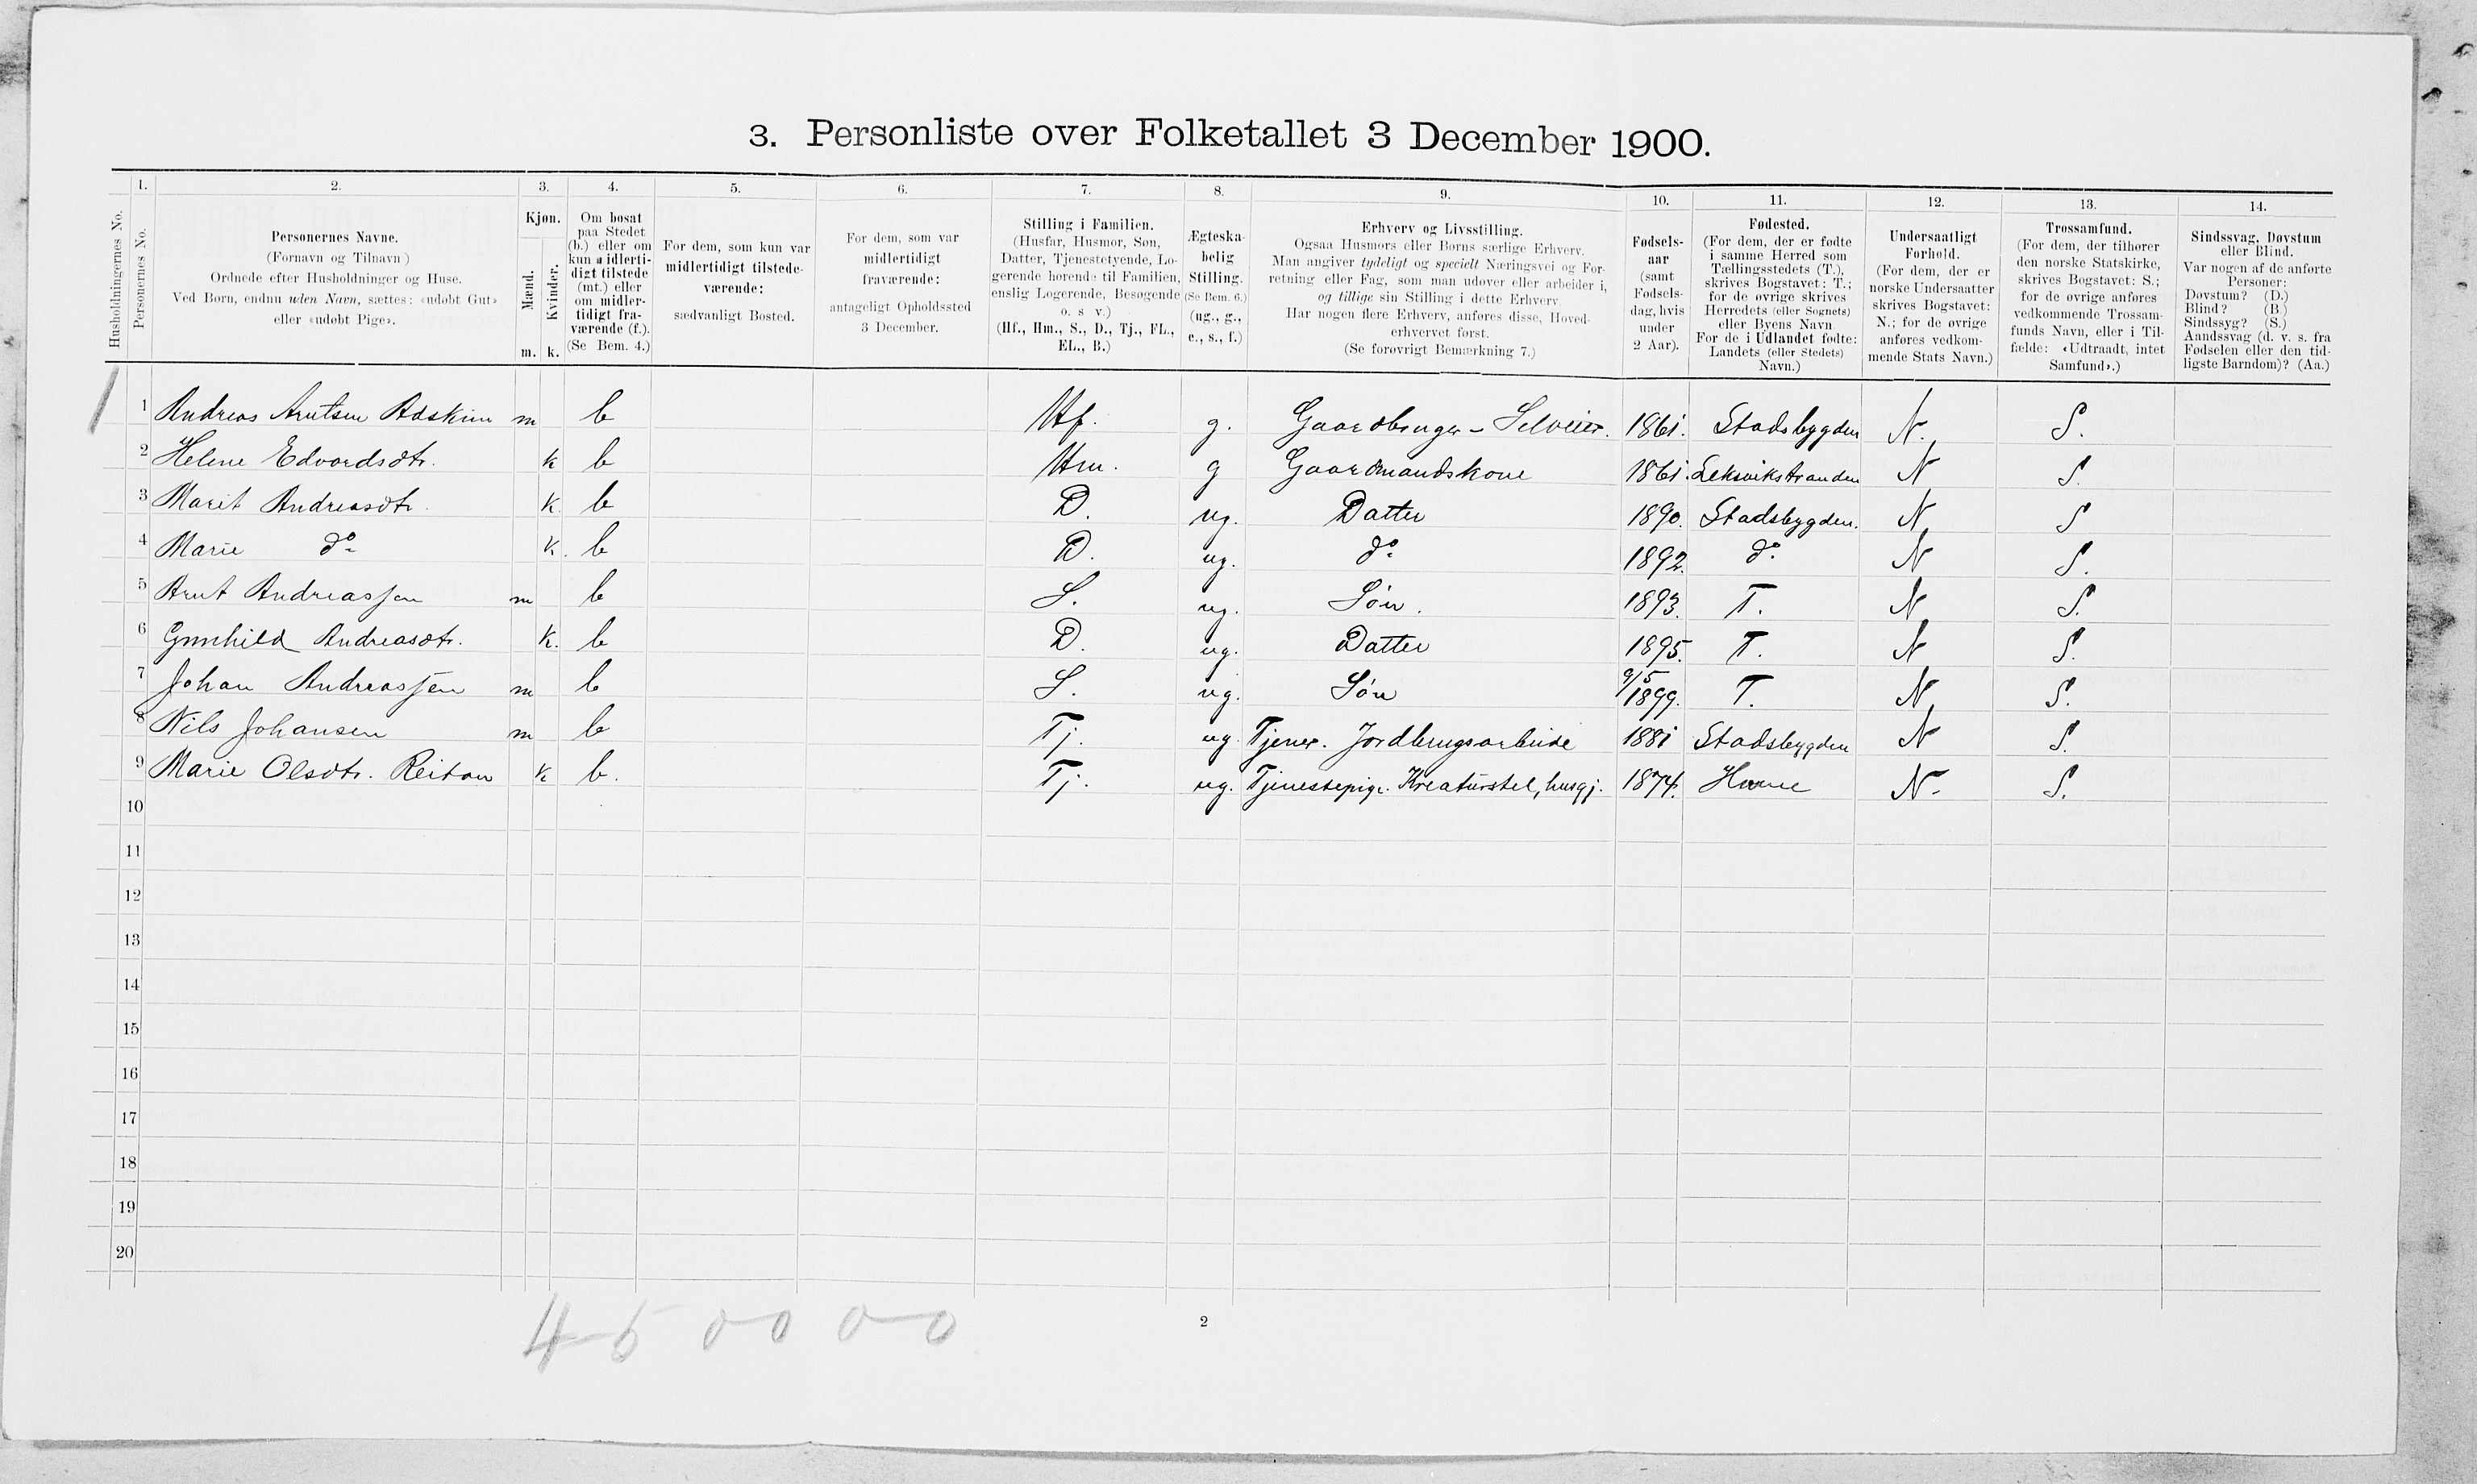 3. Personliste over Folketallet 3 December 1900.
1. 2. 3. 4. 5. 6. 7. 8. 9. 10. 11. 12. 13. 14.
Husholdningernes No.
Personernes No.
Personernes Navne.
(Fornavn og Tilnavn)
Ordnede efter Husholdninger og Huse.
Ved Børn, endnu uden Navn, sættes: «udøbt Gut»
eller «udøbt Pige».
Kjøn.
Mænd.
Kvinder.
m. k.
Om bosat
paa Stedet
(b.) eller om
kun midlerti-
digt tilstede
(mt.) eller
om midler-
tidigt fra-
værende (f.).
(Se Bem. 4.)
For dem, som kun var
midlertidigt tilstede-
værende:
sædvanligt Bosted.
For dem, som var
midlertidigt
fraværende:
antageligt Opholdssted
3 December.
Stilling i Familien.
(Husfar, Husmor, Søn,
Datter, Tjenestetyende, Lo-
gerende hørende til Familien,
enslig Logerende, Besøgende
o. s v.)
(Hf., Hm., S., D., Tj., FL.,
EL., B.)
Ægteska-
belig
Stilling.
(Se Bem. 6.)
(ug., g.,
e., s., f.)
Erhverv og Livsstilling.
Ogsaa Husmors eller Børns særlige Erhverv.
Man angiver tydeligt og specielt Næringsvei og For-
retning eller Fag, som man udøver eller arbeider i,
og tillige sin Stilling i dette Erhverv
Har nogen flere Erhverv, anføres disse, Hoved-
erhvervet først.
(Se forøvrigt Bemærkning 7.)
Fødsels-
aar
(samt
Fødsels-
dag, hvis
under
2 Aar).
Fødested.
(For dem, der er fødte
i samme Herred som
Tællingsstedets (T.),
skrives Bogstavet: T.;
for de øvrige skrives
Herredets (eller Sognets)
eller Byens Navn
For de i Udlandet fødte:
Landets (eller Stedets)
Navn.)
Undersaatligt
Forhold.
(For dem, der er
norske Undersaatter
skrives Bogstavet:
N.; for de øvrige
anføres vedkom-
mende Stats Navn.)
Trossamfund.
(For dem, der tilhører
den norske Statskirke,
skrives Bogstavet: S.;
for de øvrige anføres
vedkommende Trossam-
funds Navn, eller i Til-
fælde: «Udtraadt, intet
Samfund».)
Sindssvag, Døvstum
eller Blind.
Var nogen af de anførte
Personer:
Døvstum? (D.)
Blind? (B.)
Sindssyg? (S.)
Aandssvag (d. v. s. fra
Fødselen eller den tid-
ligste Barndom)? (Aa.)
1 Andreas Arntsen Adskim m b Hf. g. Gaardbruger - Selveier. 1861. Stadsbygden N. S.
2 Helene Edvardsdtr. k b Hm. g Gaardmandskone 1861. Leksvikstranden N S.
3 Marit Andreasdtr. k. b D. ug. Datter 1890. Stadsbygden. N. S
4 Marie do k. b D. ug. do 1892. do. N S.
5 Arnt Andreassen m b S. ug. Søn. 1893. T. N S.
6 Gunhild Andreasdtr. k. b D. ug. Datter 1895. T. N S.
7 Johan Andreassen m b S. ug. Søn 9/5 1899. T. N S.
8 Nils Johansen m b Tj. ug. Tjener. Jordbrugsarbeide 1881 Stadsbygden N S.
9 Marie Olsdtr. Reitan k b. Tj. ug. Tjenestepige. Kreaturstel, husgj. 1874. Hevne N. S.
10
11
12
13
14
15
16
17
18
19
20
2